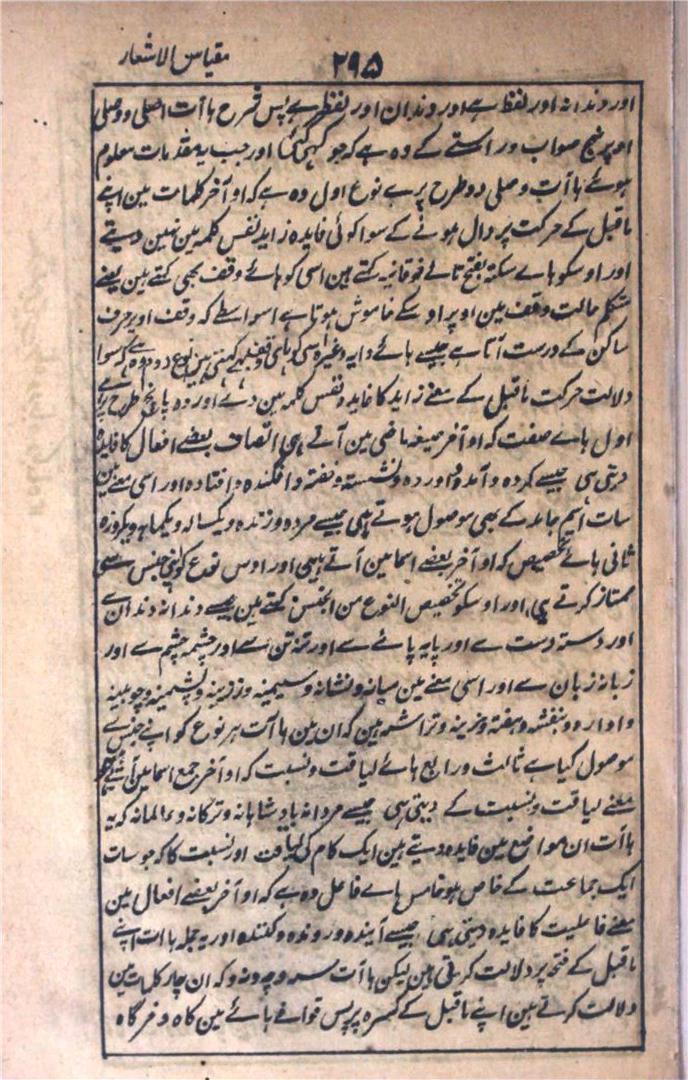 ۲۹۵
مقیاس الاشعار
اور دندانہ اور لفظ ہے اور دندان اور لفظ ہے پس شرح ہاآت اصلی و وصلی
اوپر نہج صواب و راستے کے وہ ہے کہ جو کہی گئی اور جب یہ مقدمات معلوم
ہوئے ہاآت وصلی دو طرح پر ہے نوع اول وہ ہے کہ او آخر کلمات مین اپنے
ماقبل کے حرکت پر دال ہونے کے سوا کوئی فایدہ زاید نفس کلمہ مین نہین دیتے
اور اوسکو ہاے سکتہ بفتح تاے فوقانیہ کہتے ہین اسی کو ہائے وقف بھی کہتے ہین یعنے
متکلم حالت وقف مین اوپر اوسکے خاموش ہوتا ہے اسواسطے کہ وقف اوپر حرف
ساکن کے درست آتا ہے جیسے ہائے دایہ وغیرہ اسی کو ہای وقف بھی کہتی ہین نوع دوم وہ ہے کہ سوا
دلالت حرکت ماقبل کے معنے زاید کا فایدہ نفس کلمہ مین دے اور وہ پانچ طرح پر ہے
اول ہاے صفت کہ او آخر صیغہ ماضی مین آتے ہی اتصاف بعضے افعال کا فایدہ
دیتی ہی جیسے کردہ و آمدہ و آوردہ و نشستہ و خفتہ و افگندہ و افتادہ اور اسی معنے مین
سات اسم جامد کے بھی موصول ہوتے ہی جیسے مردہ و زندہ و یکسالہ و یکماہہ و یکروزہ
ثانی ہائے تخصیص کہ او آخر بعضے اسما مین آتے ہی اور اوس نوع کو اپنی جنس سی
ممتاز کرتے ہی اور اوسکو تخصیص النوع من الجنس کہتے ہین جیسے دندانہ دندان سے
اور دستہ دست سے اور پایہ پائے سے اور تنہ تن سے اور چشمہ چشم سے اور
زبانہ زبان سے اور اسی معنے مین میانہ و نشانہ و سیمینہ و زرینہ و پشمینہ و چوبینہ
و ادارہ و بنفشہ و ہفتہ و خزینہ و تراشہ ہین کہ ان مین ہاآت ہر نوع کو اپنے جنس سے
موصول کیا ہے ثالث و رابع ہائے لیاقت و نسبت کہ او آخر جمع اسما مین آتی ہے
معنے لیاقت و نسبت کے دیتی ہی جیسے مردانہ بادشاہانہ و ترکانہ و عالمانہ کہ یہ
ہاآت ان مواضع مین فایدہ دیتے ہین ایک کام کی لیاقت اور نسبت کا کہ جو سات
ایک جماعت کے خاص ہو خامس ہاے فاعل وہ ہے کہ او آخر بعضے افعال مین
معنے فاعلیت کا فایدہ دیتی ہی جیسے آیندہ و روندہ و کنندہ اور یہ جملہ ہاآت اپنے
ماقبل کے فتحہ پر دلالت کرتی ہین لیکن ہاآت سہ و چہ و نہ و کہ ان چار کلمات مین
دلالت کرتے ہین اپنے ماقبل کے کسرہ پر پس قوافے ہائے مین کاہ و خرگاہ